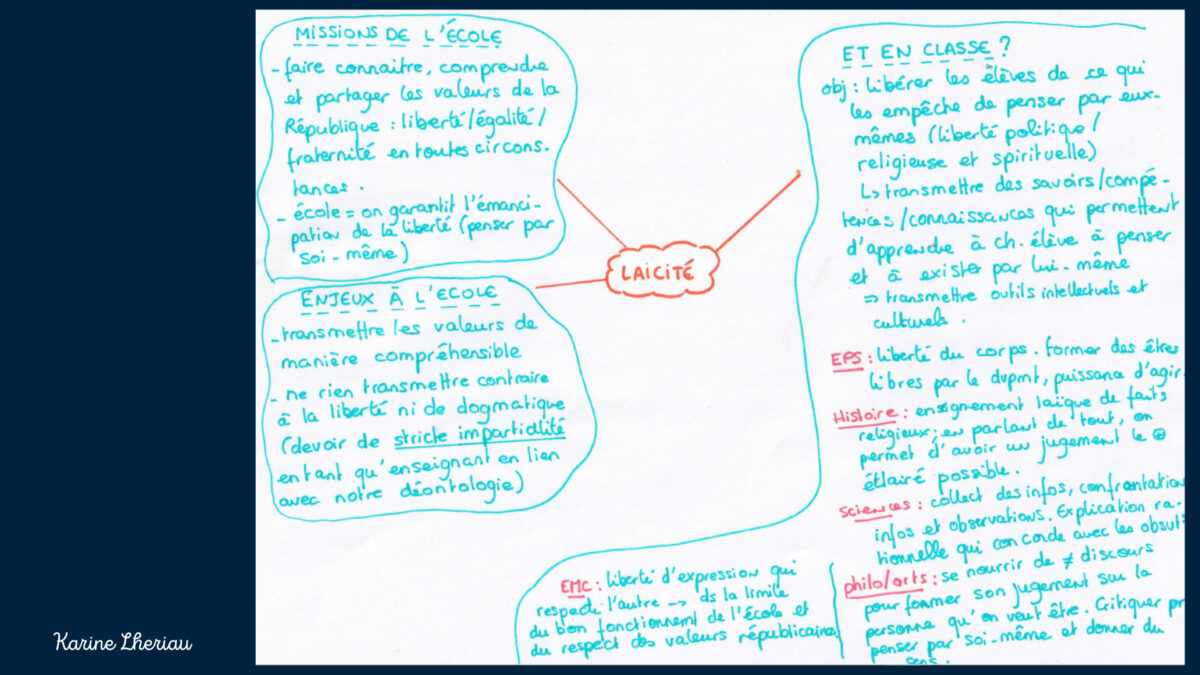 MISSIONS DE L'ÉCOLE
- faire connaitre, comprendre
et partager les valeurs de la
République : liberté/égalité/
fraternité en toutes circons-
tances.
- école = on garantit l'émanci-
pation de la liberté (penser par
soi-même)
ENJEUX À L'ECOLE
- transmettre les valeurs de
manière compréhensible
- ne rien transmettre contraire
à la liberté ni de dogmatique
(devoir de stricte impartialité
en tant qu'enseignant en lien
avec notre déontologie)
LAICITÉ
ET EN CLASSE ?
obj : libérer les élèves de ce qui
les empêche de penser par eux-
mêmes (liberté politique/
religieuse et spirituelle)
↳ transmettre des savoirs/compé-
tences/connaissances qui permettent
d'apprendre à ch. élève à penser
et à exister par lui-même
⇒ transmettre outils intellectuels et
culturels.
EPS : liberté du corps. Former des êtres
libres par le dvpmt, puissance d'agir.
Histoire : enseignement laïque de faits
religieux ; en parlant de tout, on
permet d'avoir un jugement le ⊕
éclairé possible.
Sciences : collect des infos, confrontation
infos et observations. Explication ra-
tionnelle qui concorde avec les obsv
philo/arts : se nourrir de ≠ discours
pour former son jugement sur la
personne qu'on veut être. Critiquer pr
penser par soi-même et donner du
sens.
EMC : liberté d'expression qui
respecte l'autre → ds la limite
du bon fonctionnent de l'école et
du respect des valeurs républicaines
Karine Lheriau